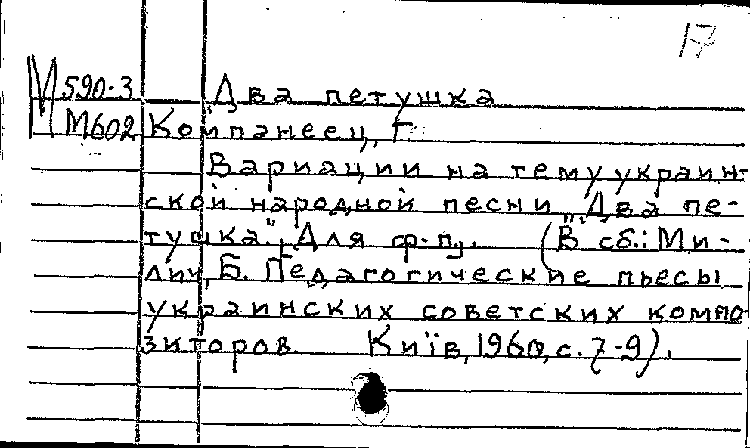 17
М590-3 Два петушка
М602 Компанеец, Г.
Вариации на тему украин-
ской народной песни „Два пе-
тушка". Для ф-п. (В сб.: Ми-
лич, Б. Педагогические пьесы
украинских советских компо
зиторов. Київ, 1960, с. 7-9).